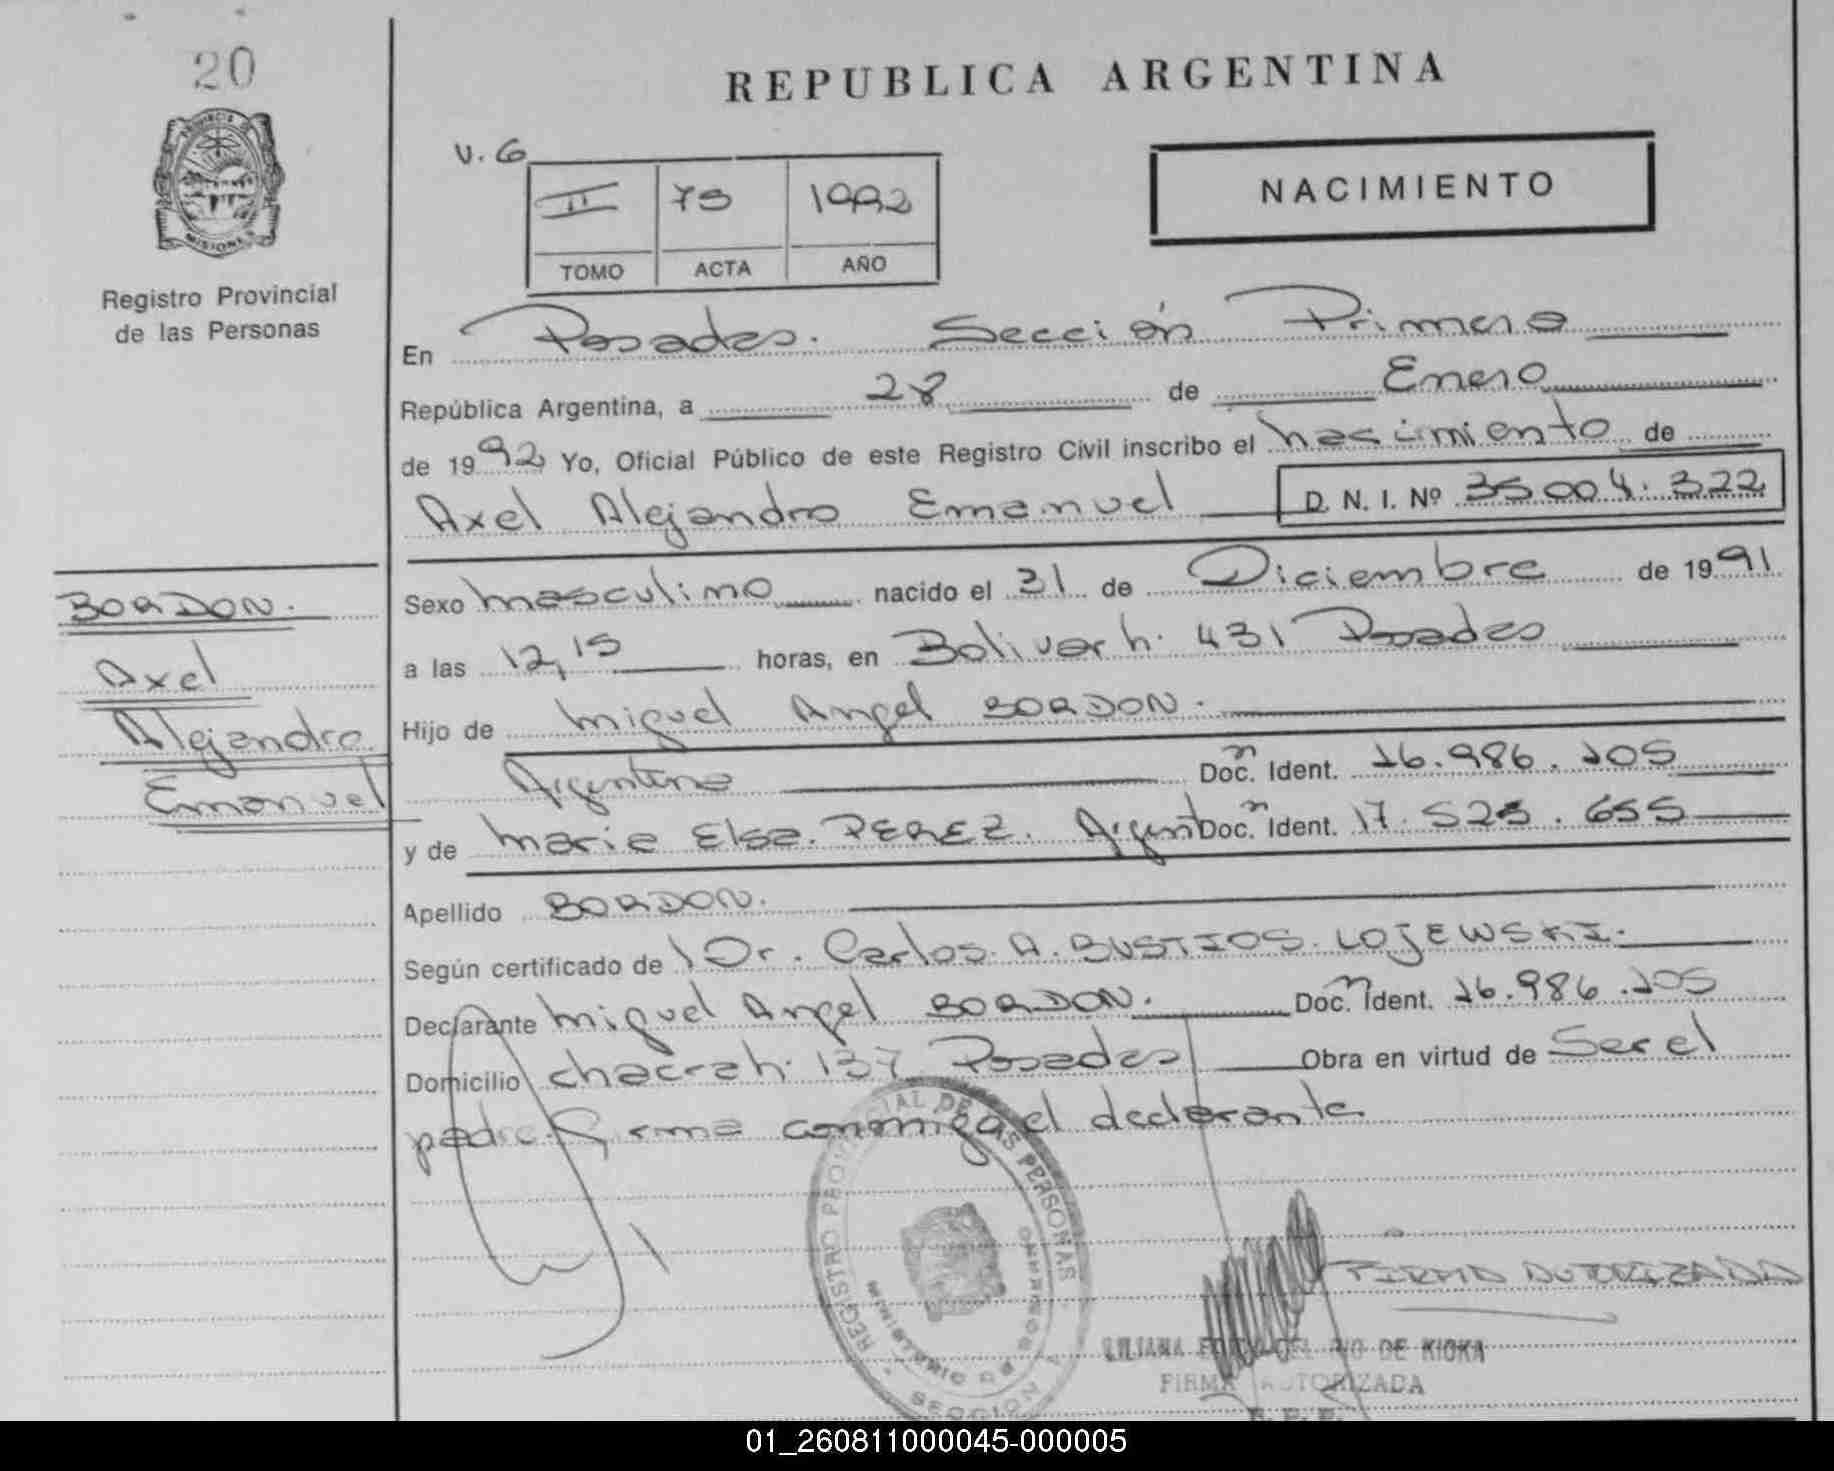 20
REPUBLICA ARGENTINA
V. G
II 75 1992
TOMO ACTA AÑO
NACIMIENTO
PROVINCIA DE
MISIONES
Registro Provincial
de las Personas
En Posadas. Sección Primera
República Argentina, a 28 de Enero
de 1992 Yo, Oficial Público de este Registro Civil inscribo el nacimiento de
Axel Alejandro Emanuel D. N. I. Nº 35 004. 322
BORDON.
Axel
Alejandro
Emanuel
Sexo masculino nacido el 31 de Diciembre de 1991
a las 12,15 horas, en Bolivar n. 431 Posadas
Hijo de Miguel Angel BORDON.
Argentino Doc. n Ident. 16.986.105
y de Maria Elsa PEREZ. Argent Doc. n Ident. 17.525.655
Apellido BORDON.
Según certificado de l Dr. Carlos A. BUSTIOS LOJEWSKI.
Declarante Miguel Angel BORDON. Doc. n Ident. 16.986.105
Domicilio chacra n. 137 Posadas Obra en virtud de Ser el
padre. Firma conmigo el declarante
REGISTRO PROVINCIAL DE LAS PERSONAS
MINISTERIO DE GOBIERNO
SECCION
FIRMA AUTORIZADA
LILIANA DEL RIO DE KIOKA
FIRMA AUTORIZADA
R. P. P.
01_260811000045-000005